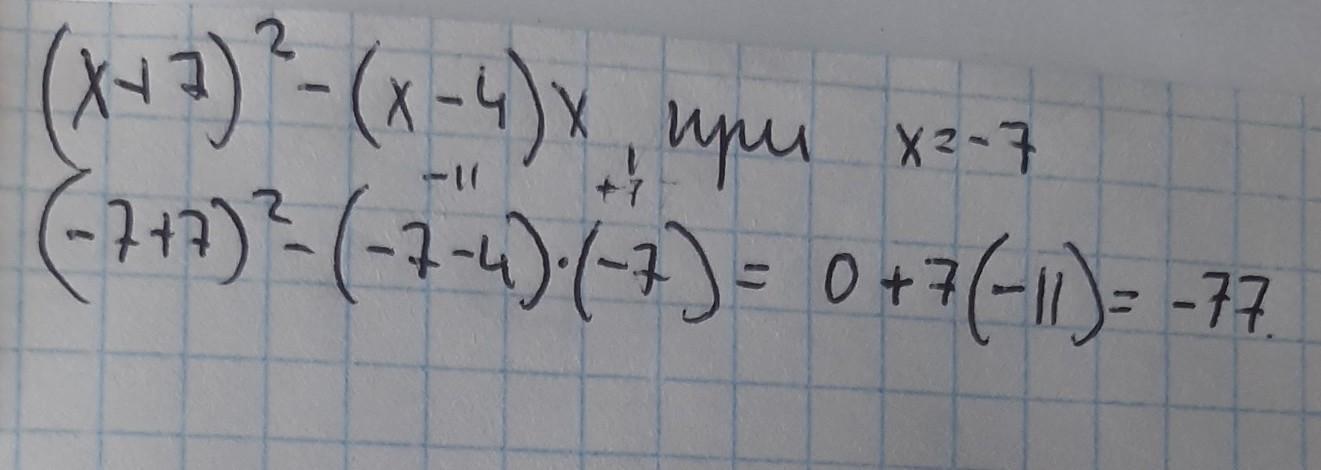 (x+7)² - (x-4)x, при x=-7
-11 +7
(-7+7)² - (-7-4)·(-7) = 0 + 7(-11) = -77.